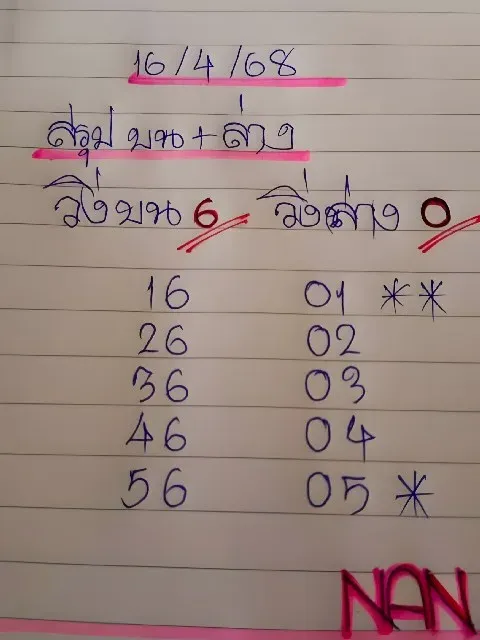 16/4/68
สรุป บน + ล่าง
วิ่งบน 6 วิ่งล่าง 0
16 01 **
26 02
36 03
46 04
56 05 *
NAN